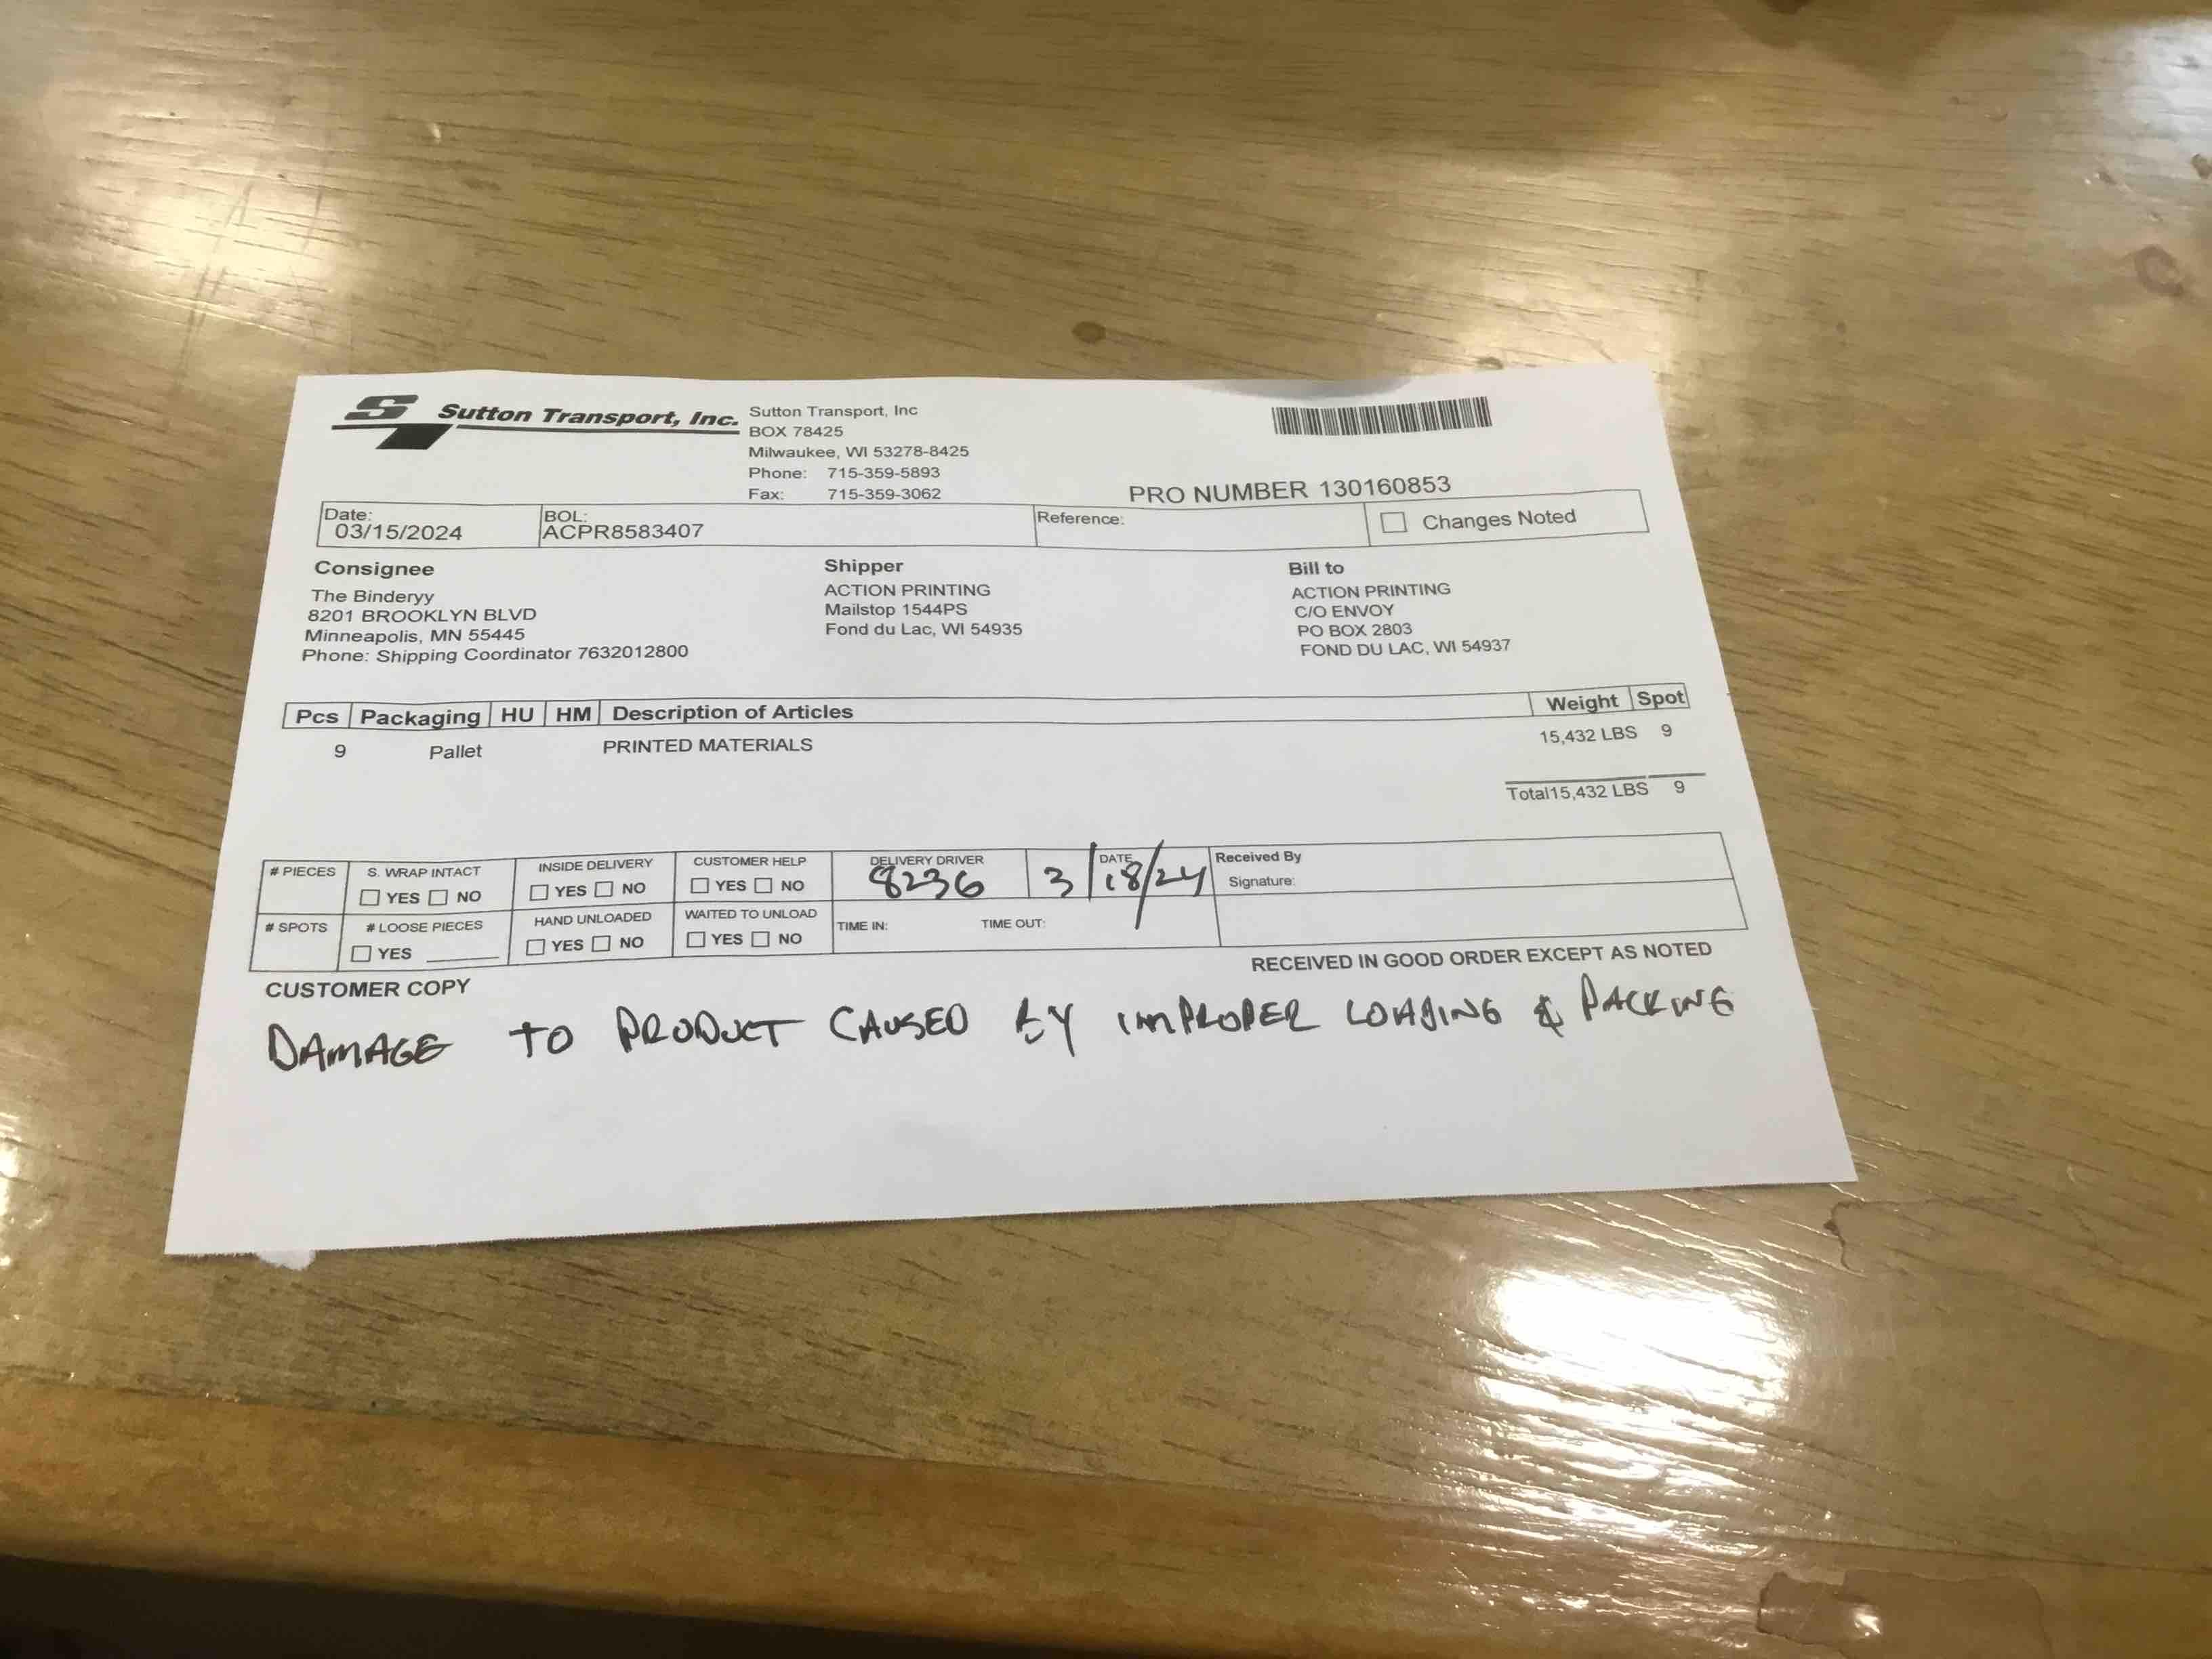 Sutton Transport, Inc.
Sutton Transport, Inc
BOX 78425
Milwaukee, WI 53278-8425
Phone: 715-359-5893
Fax: 715-359-3062
PRO NUMBER 130160853
Date: 03/15/2024
BOL: ACPR8583407
Reference:
Changes Noted
Consignee
The Binderyy
8201 BROOKLYN BLVD
Minneapolis, MN 55445
Phone: Shipping Coordinator 7632012800
Shipper
ACTION PRINTING
Mailstop 1544PS
Fond du Lac, WI 54935
Bill to
ACTION PRINTING
C/O ENVOY
PO BOX 2803
FOND DU LAC, WI 54937
Pcs Packaging HU HM Description of Articles Weight Spot
9 Pallet PRINTED MATERIALS 15,432 LBS 9
Total15,432 LBS 9
# PIECES
S. WRAP INTACT
YES NO
INSIDE DELIVERY
YES NO
CUSTOMER HELP
YES NO
DELIVERY DRIVER
8236
DATE
3/18/24
Received By
Signature:
# SPOTS
# LOOSE PIECES
YES
HAND UNLOADED
YES NO
WAITED TO UNLOAD
YES NO
TIME IN: TIME OUT:
CUSTOMER COPY
RECEIVED IN GOOD ORDER EXCEPT AS NOTED
DAMAGE TO PRODUCT CAUSED BY IMPROPER LOADING & PACKING